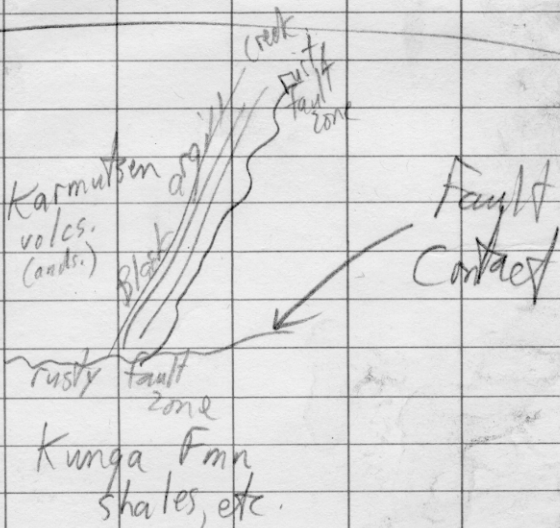 Creek
rust
fault
zone
Black argill
Karmutsen
volcs.
(ands.)
Fault
Contact
rusty fault
zone
Kunga Fmn
shales, etc.